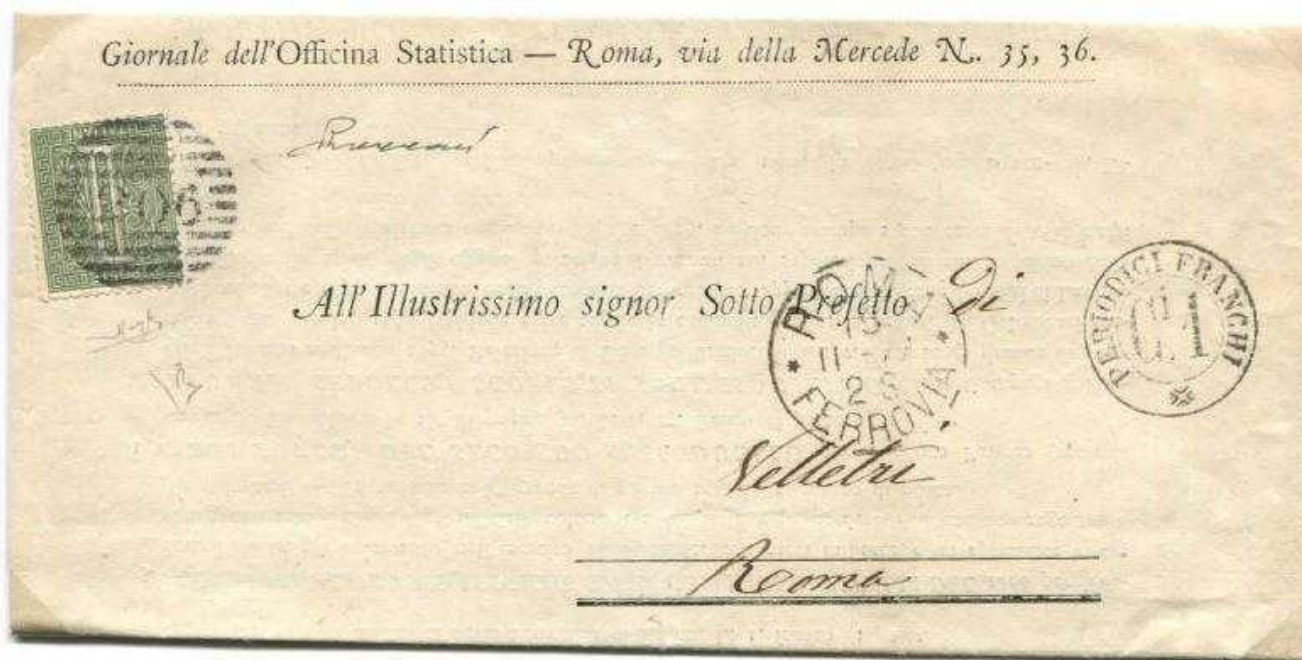 Giornale dell'Officina Statistica — Roma, via della Mercede N. 35, 36.
All'Illustrissimo signor Sotto Prefetto di
ROMA
FERROVIA
PERIODICI FRANCHI
C. 1
Velletri
Roma